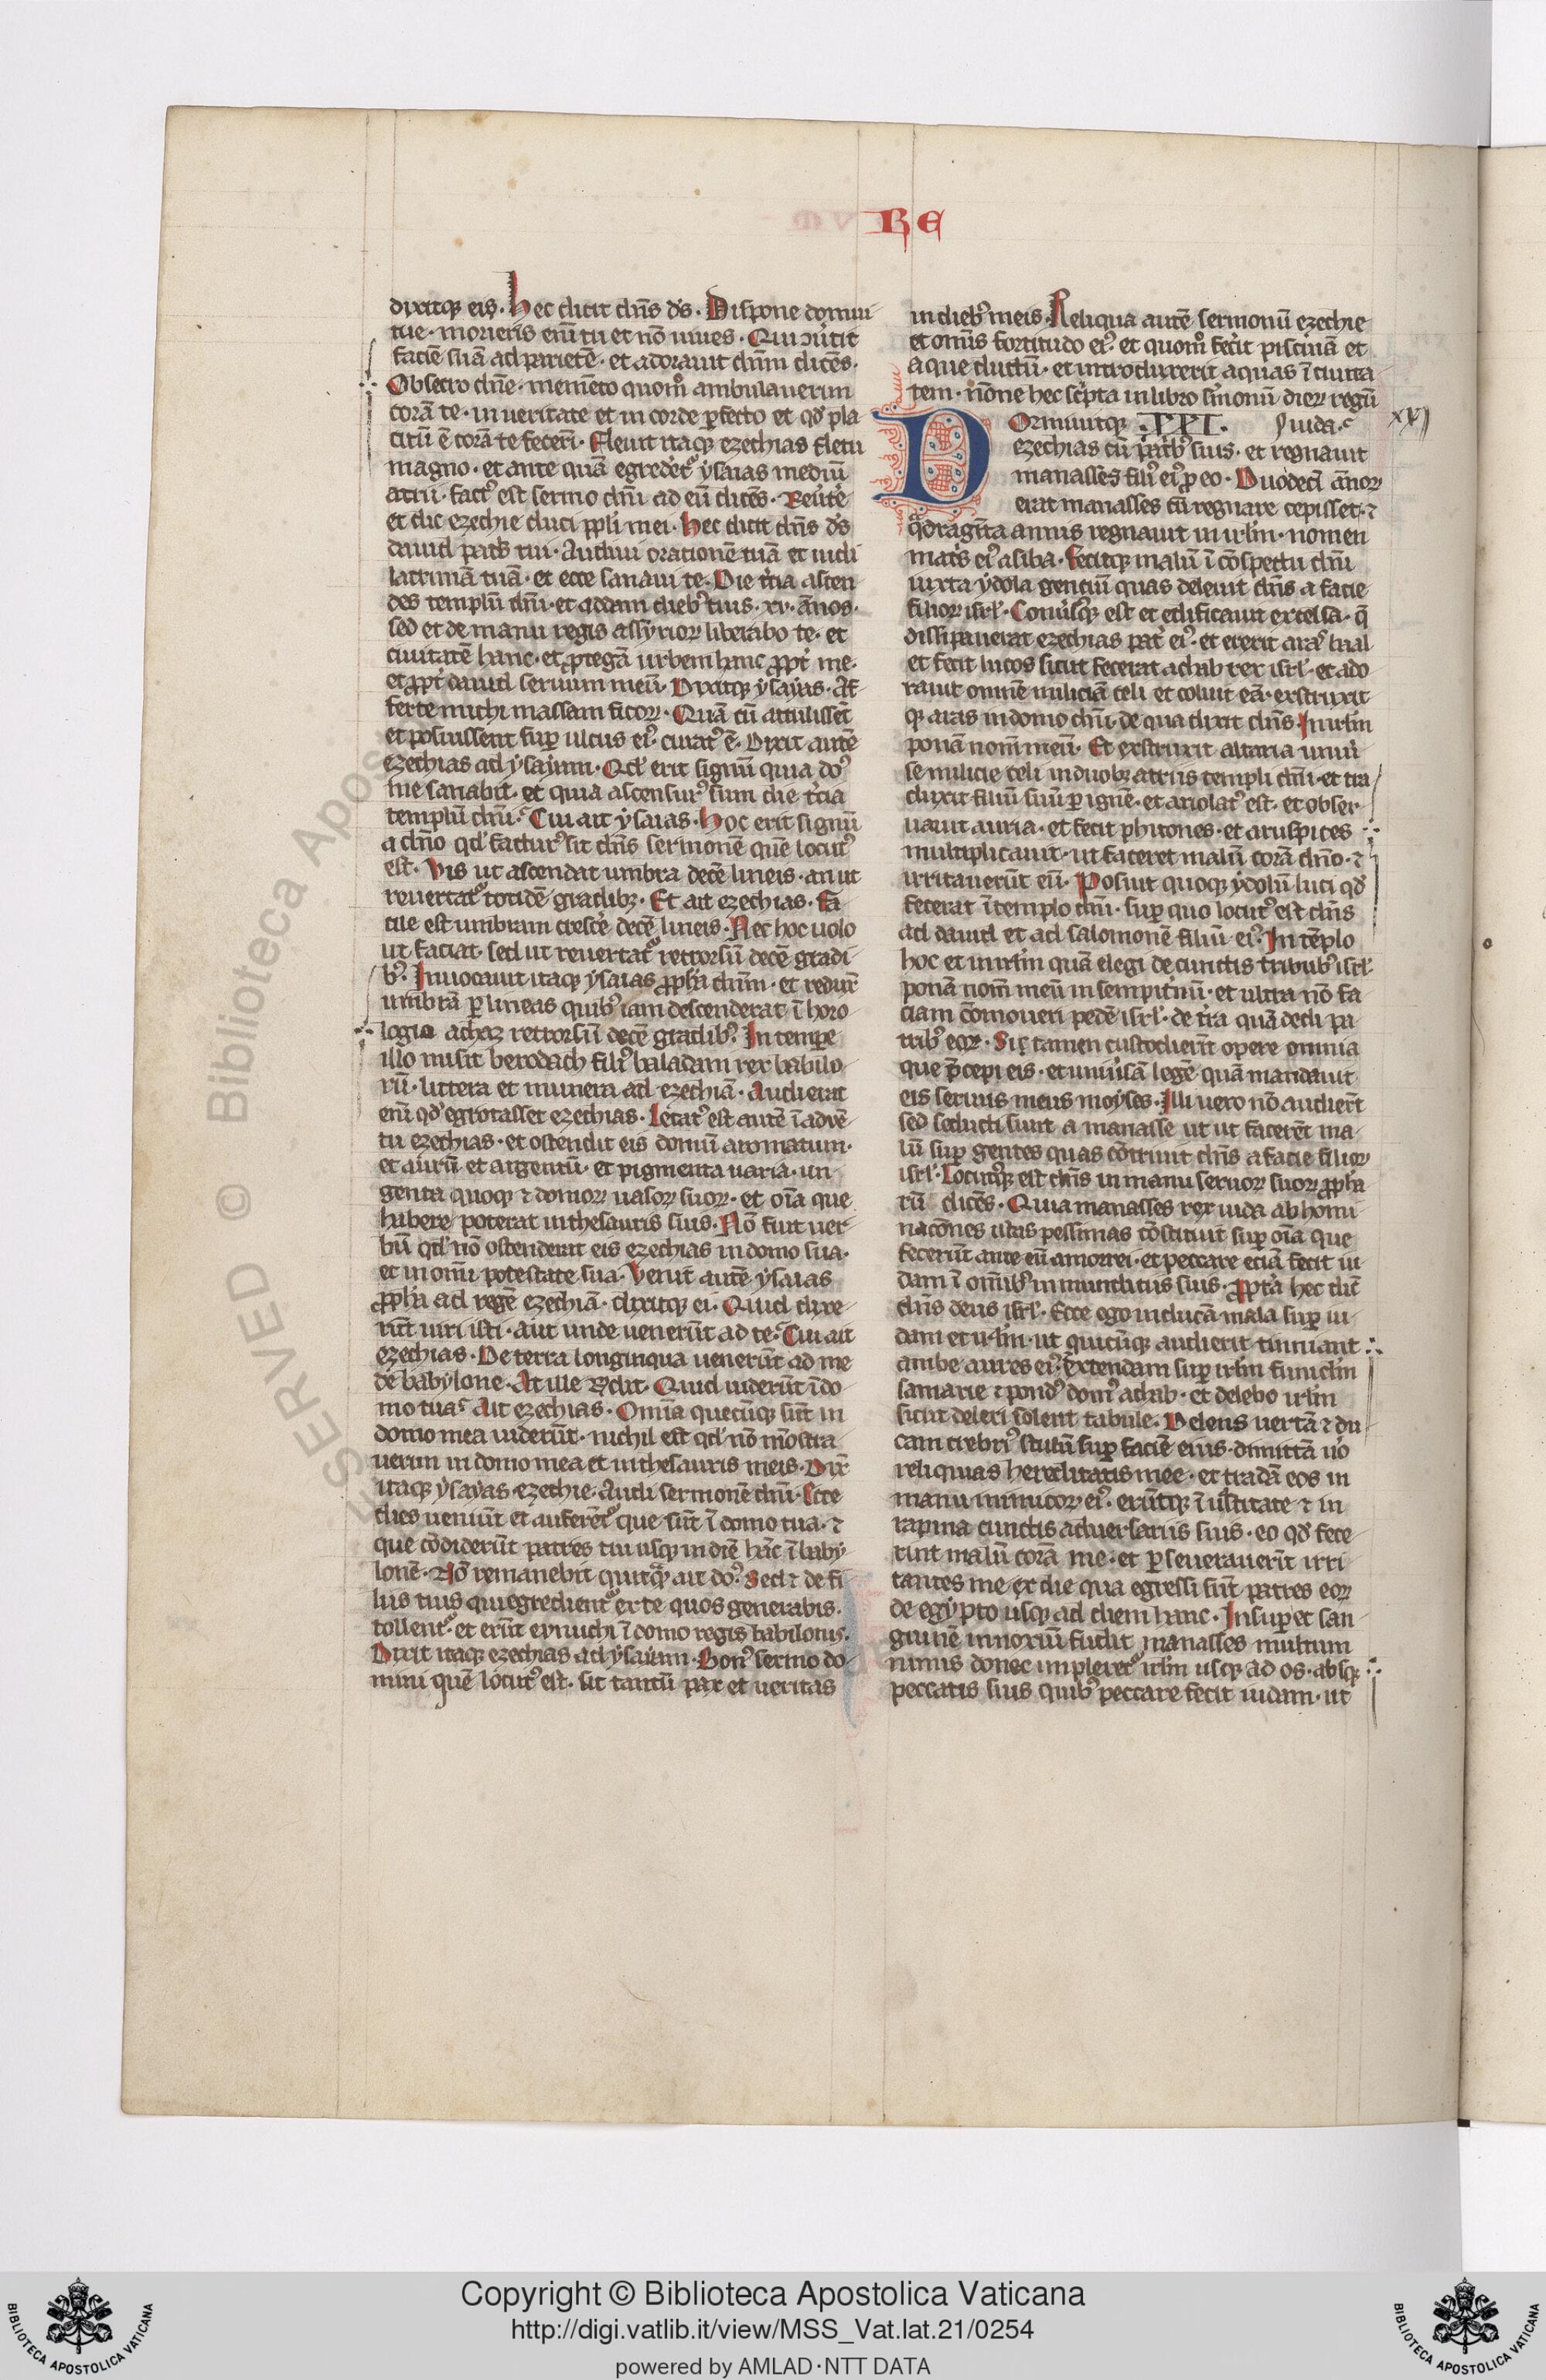 RE
dixitq; eis. Hec dicit dn̄s dꝰs. Dispone domui
tue. morieris eni̅ tu et no̅ uiues. Qui ꝯu̓tit
facie̅ sua̅ ad pariete̅. et adorauit dn̄m dice̅s.
Obsecro dn̄e. meme̅to quom̊ ambulauerim
cora̅ te. in ueritate et in corde ꝑfecto et qd̓ pla
citu̅ e̅ cora̅ te fecerı̅. Fleuit itaq; ezechias fletu
magno. et ante qua̅ egredet᷑ ysaias mediu̅
atrii. fact᷒ est sermo dn̄i ad eu̅ dice̅s. Reu̓te̓
et dic ezechie duci pp̄li mei. Hec dicit dn̄s dꝰs
dauid patꝰs tui. Audiui oratione̅ tua̅ et uidi
lacrima̅ tua̅. et ecce sanaui te. Die t̓cia ascen
des templu̅ dn̄i. et addam dieb᷒ tuis. xv. a̅nos.
sed et de manu regis assyrioꝝ liberabo te. et
ciuitate̅ hanc. et ꝓtega̅ urbem hanc ꝓpt̓ me.
et ꝓpt̓ dauid seruum meu̅. Dixitq; ysayas. Af
ferte michi massam ficoꝝ. Qua̅ cu̅ attulisse̅t
et posuissent suꝑ ulcus ei᷒. curat᷒ e̅. Dixit aute̅
ezechias ad ysayam. Qd̓ erit signu̅ quia do᷒
me sanabit. et quia ascensur᷒ sum die t̓cia
templu̅ dn̄i. Cui ait ysaias. Hoc erit signu̅
a dn̄o qd̓ factur᷒ sit dn̄s sermone̅ que̅ locut᷒
est. Vis ut ascendat umbra dece̅ lineis. an ut
reuertat᷑ totide̅ gradibꝫ. Et ait ezechias. Fa
cile est umbram cresce̓ dece̅ lineis. Nec hoc uolo
ut faciat. sed ut reuertat᷑ retrorsu̅ dece̅ gradi
b᷒. Inuocauit itaq; ysaias ꝓph̄a dn̄m. et reduxꝰ
umbra̅ ꝑ lineas quib᷒ iam descenderat ı̅ horo
logio achaz retrorsu̅ dece̅ gradib᷒. In tempe
illo misit berodach fili᷒ baladam rex babilo
ru̅. littera et munera ad ezechia̅. Audierat
eni̅ qd̓ egrotasset ezechias. Letat᷒ est aute̅ ı̅ adve̅
tu ezechias. et ostendit eis domu̅ aromatum.
et auru̅ et argentu̅. et pigmenta uaria. un
genta quoq; ⁊ domoꝝ uasoꝝ suoꝝ. et oı̅a que
habere poterat in thesauris suis. No̅ fuit uer
bu̅ qd̓ no̅ ostenderit eis ezechias in domo sua.
et in om̅i potestate sua. Venit aute̅ ysaias
ꝓph̄a ad rege̅ ezechia̅. dixitq; ei. Quid dixe
ru̅t uiri isti. aut unde ueneru̅t ad te. Cui ait
ezechias. De terra longinqua ueneru̅t ad me
de babylone. At ille Rn̄dit. Quid uideru̅t ı̅ do
mo tua. Ait ezechias. Omı̅a quecu̅q; su̅t in
domo mea uideru̅t. nichil est qd̓ no̅ mo̅stra
uerim in domo mea et in thesauris meis. Dixꝰ
itaq; ysayas ezechie. Audi sermone̅ dn̄i. Ecce
dies ueniu̅t et aufere̅t᷑ que su̅t ı̅ domo tua. ⁊
que co̅diderut patres tui usq; in die̅ ha̅c ı̅ baby
lone̅. No̅ remanebit quicq̓ ait do᷒. Sed ⁊ de fi
liis tuis qui egredient᷑ ex te quos generabis.
tollent᷑. et eru̅t eunuchi ı̅ domo regis babilonis.
Dixit itaq; ezechias ad ysayam. Bon᷒ sermo do
mini que̅ locut᷒ est. sit tantu̅ pax et ueritas
in dieb᷒ meis. Reliqua aute̅ sermonu̅ ezechie
et omı̅s fortitudo ei᷒. et quom̊ fec̓it piscina̅ et
aque ductu̅. et introduxerit aquas ı̅ ciuita
tem. no̅ne hec sc̓pta in libro s̓monu̅ dieꝝ regu̅
DOrmiuitq; .XXI. Iuda.
xxj
ezechias cu̅ patrib᷒ suis. et regnauit
manasses fili᷒ ei᷒ ꝓ eo. Duodecı̅ a̅noꝝ
erat manasses cu̅ regnare cepisset. ⁊
q̓dragı̅ta annis regnauit in ir̄lm. nomen
mat̓s ei᷒ asiba. Fecitq; malu̅ ı̅ co̅spectu dn̄i
iuxta ydola gentiu̅ quas deleuit dn̄s a facie
filioꝝ isrl̓. Conu̓sq; est et edificauit excelsa. q̅
dissipauerat ezechias pat̓ ei᷒. et erexit aras baal
et fecit lucos sicut fecerat achab rex isrl̓. et ado
rauit omne̅ milicia̅ celi et coluit ea̅. exstruxit
q; aras in domo dn̄i. de qua dixit dn̄s. In ir̄lm
pona̅ nom̄ meu̅. Et exstruxit altaria uniu̓
se milicie celi in duobꝫ atriis templi dn̄i. et tra
duxit filiu̅ suu̅ ꝑ igne̅. et ariolat᷒ est. et obser
uauit auria. et fecit phitones. et aruspices
multiplicauit. ut faceret malu̅ cora̅ dn̄o. ⁊
irritaueru̅t eu̅. Posuit quoq; ydolu̅ luci qd̓
fecerat ı̅ templo dn̄i. suꝑ quo locut᷒ est dn̄s
ad dauid et ad salomone̅ filiu̅ ei᷒. In te̅plo
hoc et in ir̄lm qua̅ elegi de cunctis tribub᷒ isrl̓
pona̅ nom̄ meu̅ in sempit̓nu̅. et ultra no̅ fa
ciam co̅moueri pede̅ isrl̓. de t̓ra qua̅ dedi pa
trib᷒ eoꝝ. Sic tamen custodieri̅t opere omnia
que p̅cepi eis. et uniu̓sa̅ lege̅ qua̅ mandauit
eis seruus meus moyses. Illi uero no̅ audier̅t
sed seducti sunt a manasse ut ut facere̅t ma
lu̅ suꝑ gentes quas co̅triuit dn̄s a facie filioꝝ
isrl̓. Locutq; est dn̄s in manu seruoꝝ suoꝝ ꝓph̄a
ru̅ dice̅s. Quia manasses rex iuda abhomi
naco̅nes istas pessimas co̅stituit suꝑ oı̅a que
feceru̅t ante eu̅ amorrei. et peccare ecia̅ fecit iu
dam ı̅ om̅ib᷒ in mundiciis suis. ꝓpt̓a hec dic̅
dn̄s deus isrl̓. Ecce ego inducā mala suꝑ iu
dam et ir̄lm. ut quicu̅q; audierit tinniant
ambe aures ei᷒. Extendam suꝑ ir̄lm funicl̓m
samarie ⁊ pond᷒ dom᷒ achab. et delebo ir̄lm
sicut deleri solent tabule. Delens uerta̅ ⁊ du
cam crebri᷒ stilu̅ suꝑ facie̅ eius. dimitta̅ uo̓
reliquias hereditatis mee. et trada̅ eos in
manu inimicoꝝ ei᷒. eru̅tq; ı̅ uastitate ⁊ in
rapina cunctis aduersariis suis. eo qd̓ fece
rint malu̅ cora̅ me. et ꝑseuerauerı̅t irri
tantes me ex die qua egressi su̅t patres eoꝝ
de egypto usq; ad diem hanc. Insuper et san
guine̅ innoxiu̅ fudit manasses multum
nimis donec impleret᷑ ir̄lm usq; ad os. absq;
peccatis suis quib᷒ peccare fecit iudam. ut
© Biblioteca Apos
SERVED
Copyright © Biblioteca Apostolica Vaticana
http://digi.vatlib.it/view/MSS_Vat.lat.21/0254
powered by AMLAD·NTT DATA
BIBLIOTECA APOSTOLICA VATICANA
BIBLIOTECA APOSTOLICA VATICANA